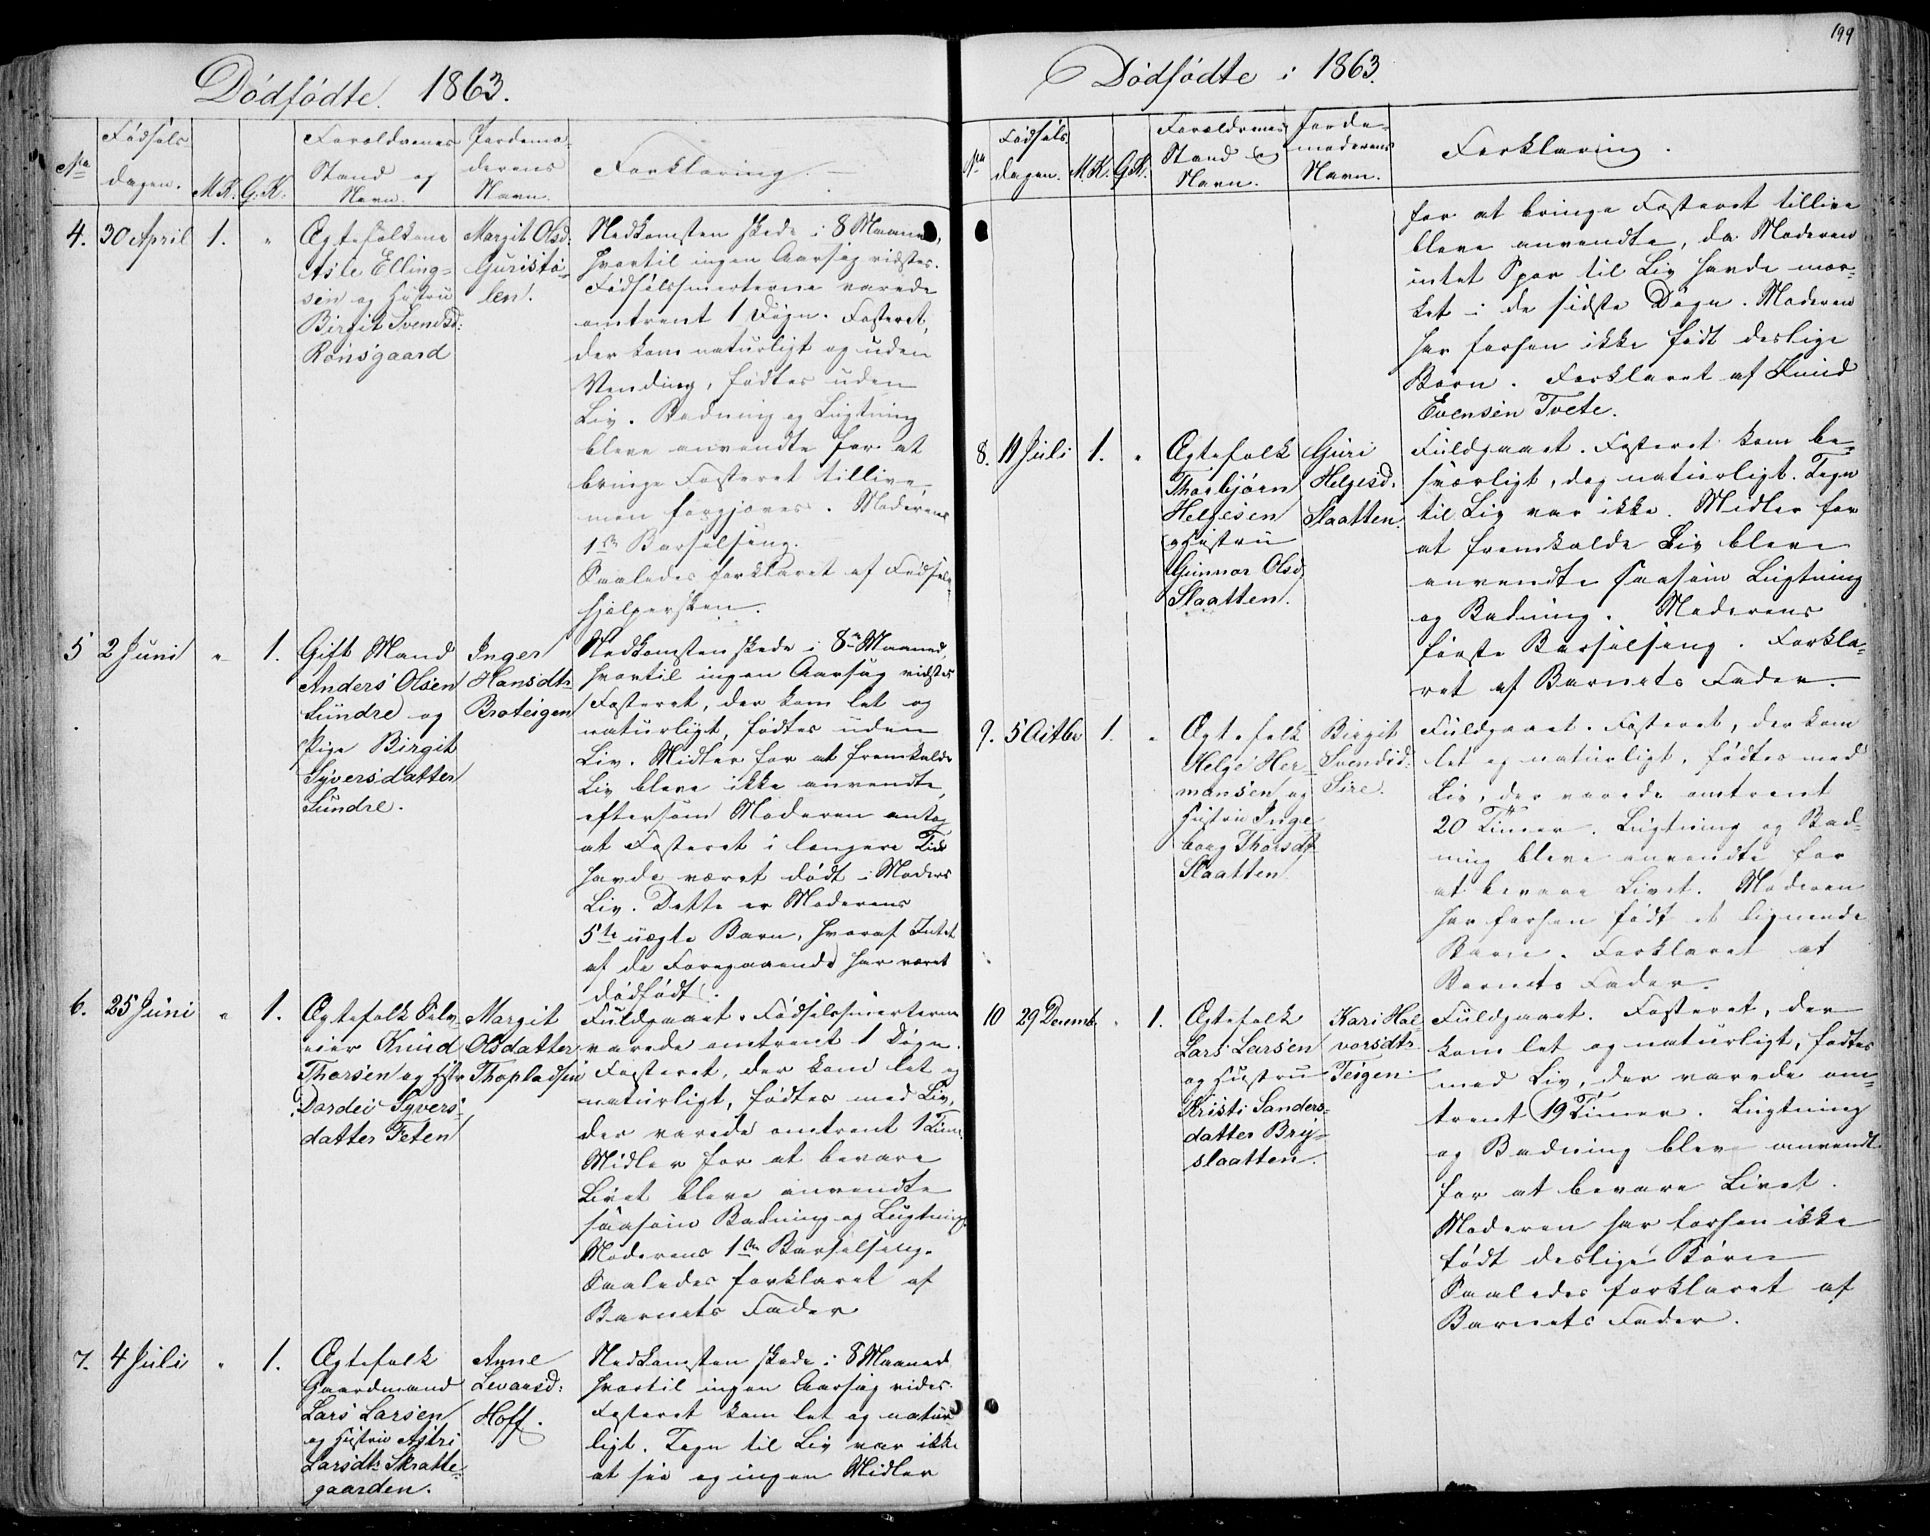 Dødfødte 1863.
No
Fødsels
dagen.
M.K.
G.K.
Forældrenes
Stand og
Navn.
Jordemo-
derens
Navn.
Forklaring.
4.
30 April
1.
"
Ægtefolkene
Aste Elling-
sen og Hustru
Birgit Svendsd:
Rønsgaard
Margit Olsd:
Guristø-
len.
Nedkomsten skede i 8 Maaned,
hvortil ingen Aarsag vidstes.
Fødselssmerterne varede
omtrent 1 Døgn. Fosteret,
der kom naturligt og uden
Vending, fødtes uden
Liv. Badning og Lugtning
bleve anvendte for at
bringe Fosteret tillive,
men forgjæves. Moderens
1ste Barselseng.
Saaledes forklaret af Fødsels-
hjælpersken.
5
2 Juni
"
1.
Gift Mand
Anders Olsen
Sundre og
Pige Birgit
Syversdatter
Sundre.
Inger
Hansdtr
Broteigen
Nedkomsten skede i 8de Maaned,
hvortil ingen Aarsag vidstes
Fosteret, der kom let og
naturligt, fødtes uden
Liv. Midler for at fremkalde
Liv bleve ikke anvendte,
eftersom Moderen antog
at Fosteret i længere Tid
havde været dødt i Moders
Liv. Dette er Moderens
5te uægte Barn, hvoraf Intet
af de Foregaaende har været
dødfødt.
6.
25 Juni
"
1.
Ægtefolk Selv-
eier Knud
Thorsen og Hstr
Dordei Syvers-
datter Feten
Margit
Olsdatter
Thopladsen
Fuldgaaet. Fødselssmerterne
varede omtrent 1 Døgn.
Fosteret, der kom let og
naturligt, fødtes med Liv,
der varede omtrent 1 Time.
Midler for at bevare
Livet bleve anvendte
saasom Badning og Lugtning
Moderens 1ste Barselseng.
Saaledes forklaret af
Barnets Fader
7.
4 Juli
"
1.
Ægtefolk
Gaardmand
Lars Larsen
og Hustru Astri
Larsdtr Skratte-
gaarden.
Anne
Levaarsd:
Hoff.
Nedkomsten skede i 8 Maaned
hvortil ingen Aarsag vides.
Fosteret kom let og natur-
ligt. Tegn til Liv var ikke
at see og ingen Midler
199
Dødfødte i 1863.
No
Fødsels
dagen.
M.K.
G.K.
Forældrenes
Stand og
Navn.
Jorde-
moderens
Navn.
Forklaring.
for at bringe Fosteret tillive
bleve anvendte, da Moderen
intet Spor til Liv havde mær-
ket i de sidste Døgn. Moderen
har forhen ikke født deslige
Børn. Forklaret af Knud
Evensen Tvete.
8.
11 Juli
1.
"
Ægtefolk
Thorbjørn
Helgesen
og Hustru
Gunnor Olsd
Slaatten.
Guri
Helgesd:
Slaatten.
Fuldgaaet. Fosteret kom be-
sværligt, dog naturligt. Tegn
til Liv var ikke. Midler for
at fremkalde Liv bleve
anvendte saasom Lugtning
og Badning. Moderens
første Barselseng. Forkla-
ret af Barnets Fader.
9.
5 Octbr
1.
"
Ægtefolk
Helge Her-
mansen og
Hustru Inge-
borg Thorsdt
Slaatten
Birgit
Svendsd:
Sire.
Fuldgaaet. Fosteret, der kom
let og naturligt, fødtes med
Liv, der varede omtrent
20 Timer. Lugtning og Bad-
ning bleve anvendte for
at bevare Livet. Moderen
har forhen født et lignende
Barn. Forklaret af
Barnets Fader.
10
29 Decemb.
"
1.
Ægtefolk
Lars Larsen
og Hustru
Kristi Sanders-
datter Bry-
slaatten.
Kari Hal
vorsdtr
Teigen.
Fuldgaaet. Fosteret, der
kom let og naturligt, fødtes
med Liv, der varede om-
trent 19 Timer. Lugtning
og Badning blev anvendt
for at bevare Livet.
Moderen har forhen ikke
født deslige Børn
Saaledes forklaret af
Barnets Fader.